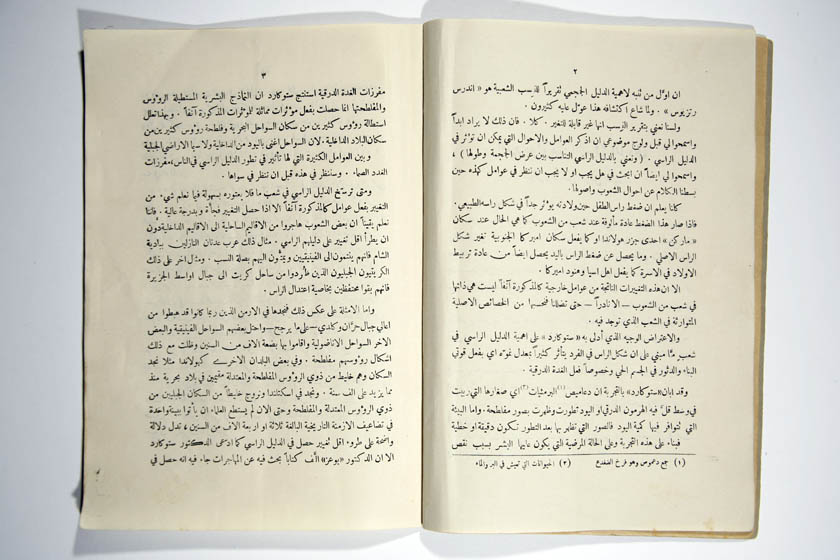 ٢
ان اوّل من تنبه لاهمية الدليل الجمجمي تقريراً للنسب الشعبية هو « اندرس
رتزيوس » . ولما شاع اكتشافه هذا عوّل عليه كثيرون .
ولسنا نعني بتقرير النسب انها غير قابلة التغير . كلا . فان ذلك لا يراد ابداً
واسمحوا لي قبل ولوج موضوعي ان اذكر العوامل والاحوال التي يمكن ان تؤثر في
الدليل الراسي . ( ونعني بالدليل الراسي التناسب بين عرض الجمجمة وطولها ) ،
واسمحوا لي ايضاً ان ابحث في هل يجب او لا يجب ان ننظر في عوامل كهذه حين
بسطنا الكلام عن احوال الشعوب واصولها .
كلنا يعلم ان ضغط راس الطفل حين ولادته يوثر جداً في شكل راسه الطبيعي .
فاذا صار هذا الضغط عادة مألوفة عند شعب من الشعوب كما هي الحال عند سكان
« ماركن » احدى جزر هولاندا او كما يفعل سكان اميركا الجنوبية تغير شكل
الراس الاصلي . وما يحصل عن ضغط الراس باليد يحصل ايضاً من عادة تربيط
الاولاد في الاسرة كما يفعل اهل اسيا وهنود اميركا .
الا ان هذه التغييرات الناتجة من عوامل خارجية كالمذكورة آنفاً ليست هي ذاتها
في شعب من الشعوب — الا نادراً — حتى تضللنا فنحسبها من الخصائص الاصلية
المتوارثة في الشعب الذي توجد فيه .
والاعتراض الوجيه الذي أدلى به « ستوكارد » على اهمية الدليل الراسي في
شعب ما مبني على ان شكل الراس في الفرد يتأثر كثيراً بمعدل نموّه اي بفعل قوتي
البناء والدثور في الجسم الحي وخصوصاً فعل الغدة الدرقية .
وقد ابان «ستوكارد» بالتجربة ان دعاميص (١) البرمثيات (٢) اي صغارها التي ربيت
في وسط قلّ فيه الهرمون الدرقي او اليود تطورت وظهرت بصور مفلطحة . واما البيئة
التي تتوافر فيها كمية اليود فالصور التي تظهر بها بعد التطور تكون دقيقة او خطية
فبناء على هذه التجربة وعلى الحالة المرضية التي يكون عليها البشر بسبب نقص
(١) جمع دعموص وهو فرخ الضفدع (٢) الحيوانات التي تعيش في البر والماء
٣
مفرزات الغدة الدرقية استنتج ستوكارد ان النماذج البشرية المستطيلة الروؤس
والمفلطحتها انما حصلت بفعل موثرات مماثلة للموثرات المذكورة آنفاً . وبهذا تعلل
استطالة روؤس كثيرين من سكان السواحل البحرية وفلطحة روؤس كثيرين من
سكان البلاد الداخلية . لان السواحل اغنى باليود من الداخلية ولا سيما الاراضي الجبلية
وبين العوامل الكثيرة التي لها تأثير في تطور الدليل الراسي في الناس، مفرزات
الغدد الصماء . وسننظر في هذه قبل ان ننظر في سواها .
ومتى ترسّخ الدليل الراسي في شعب ما فلا يعتوره بسهولة فيما نعلم شيء من
التغيير بفعل عوامل كالمذكورة آنفاً الا اذا حصل التغيير فجأة وبدرجة عالية . فاننا
نعلم يقيناً ان بعض الشعوب هاجروا من الاقاليم الساحلية الى الاقاليم الداخلية دون
ان يطرأ اقل تغيير على دليلهم الراسي . مثال ذلك عرب عدنان النازلين ببادية
الشام فانهم ينتمون الى الفينيقيين ويمتّون اليهم بصلة النسب . ومثال اخر على ذلك
الكريتيون الجبليون الذين طُردوا من ساحل كريت الى جبال اواسط الجزيرة
فانهم بقوا محتفظين بخاصية اعتدال الراس .
واما الامثلة على عكس ذلك فنجدها في الارمن الذين ربما كانوا قد هبطوا من
اعالي جبال حرّان وكلدي — على ما يرجح — واحتل بعضهم السواحل الفينيقية والبعض
الاخر السواحل الاناضولية واقاموا بها بضعة الاف من السنين وظل مع ذلك
اشكال روؤسهم مفلطحة . وفي بعض البلدان الاخرى كهولاندا مثلا نجد
السكان وهم خليط من ذوي الروؤس المفلطحة والمعتدلة مقيمين في بلاد بحرية منذ
مما يزيد على الف سنة . ونجد في اسكتلندا ونروج خليطاً من السكان الجبليين من
ذوي الروؤس المعتدلة والمفلطحة وحتى الان لم يستطع العلماء ان يأتوا ببينة واحدة
في تضاعيف الازمنة التاريخية البالغة ثلاثة او اربعة الاف من السنين ، تدل دلالة
واضحة على طروء اقل تغيير حصل في الدليل الراسي كما ادعى الدكتور ستوكارد
الا ان الدكتور «بوعز» الف كتاباً بحث فيه عن المهاجرات جاء فيه انه حصل في